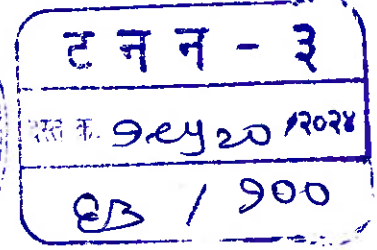 ट न न - ३
दस्त क्र. १७५२० /२०२४
६३ / १००